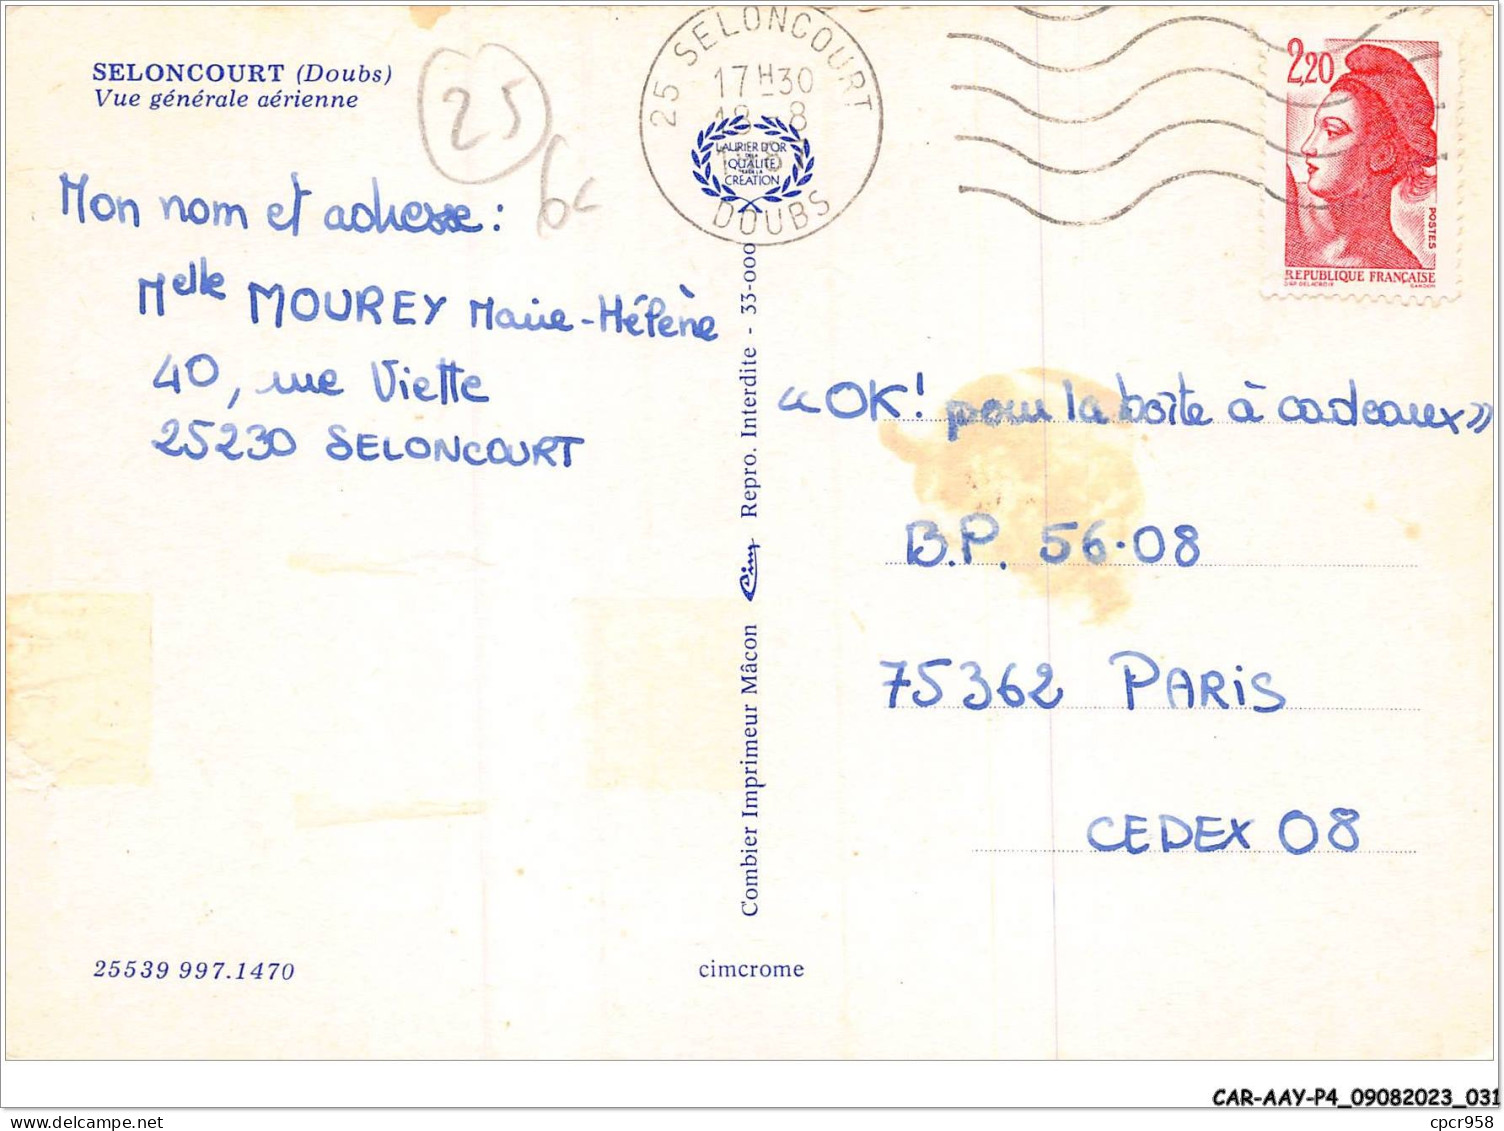 SELONCOURT (Doubs)
Vue générale aérienne
25
25 SELONCOURT
17H30
18-8
DOUBS
LAURIER D'OR
QUALITÉ
CRÉATION
2,20
POSTES
REPUBLIQUE FRANÇAISE
Mon nom et adresse :
Melle MOUREY Marie-Hélène
40, rue Viette
25230 SELONCOURT
Combier Imprimeur Mâcon Cim Repro. Interdite - 33-000
«OK! pour la boîte à cadeaux»
B.P. 56.08
75362 PARIS
CEDEX 08
25539 997.1470
cimcrome
CAR-AAY-P4_09082023_031
delcampe.net
cpcr958